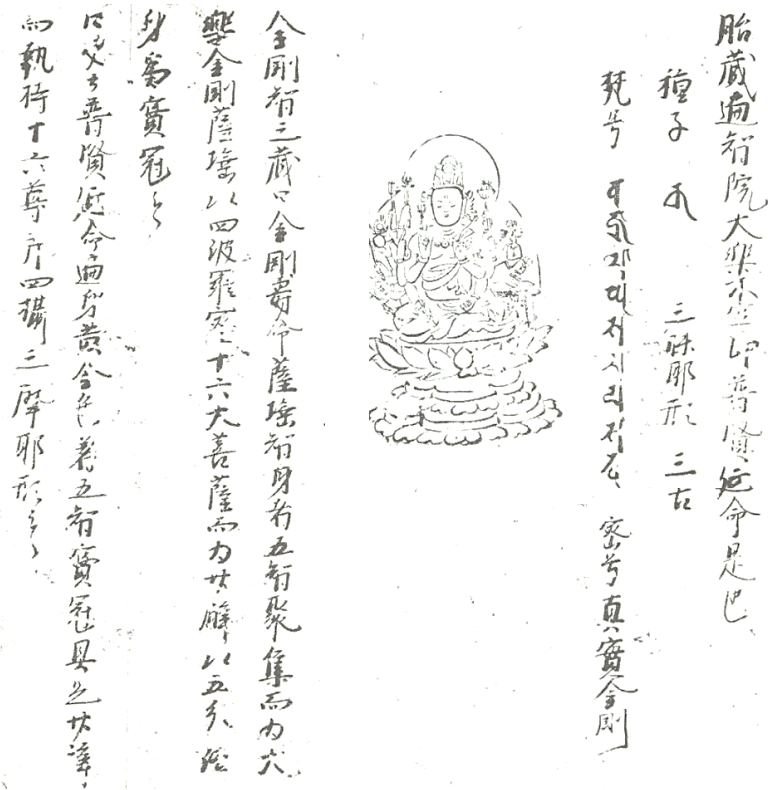 胎蔵遍智院大樂不空即普賢延命是也
種子 三昧耶形 三古
梵号 密号真實金剛
金剛智三蔵口金剛壽命薩埵智身者五智聚集而为大
樂金剛薩埵以四波羅蜜十六大菩薩而为廿臂以五
身為寶冠云々
云普賢延命遍身黄金色着五智寶冠具足廿臂
而執持十六尊并四攝三摩耶形云々